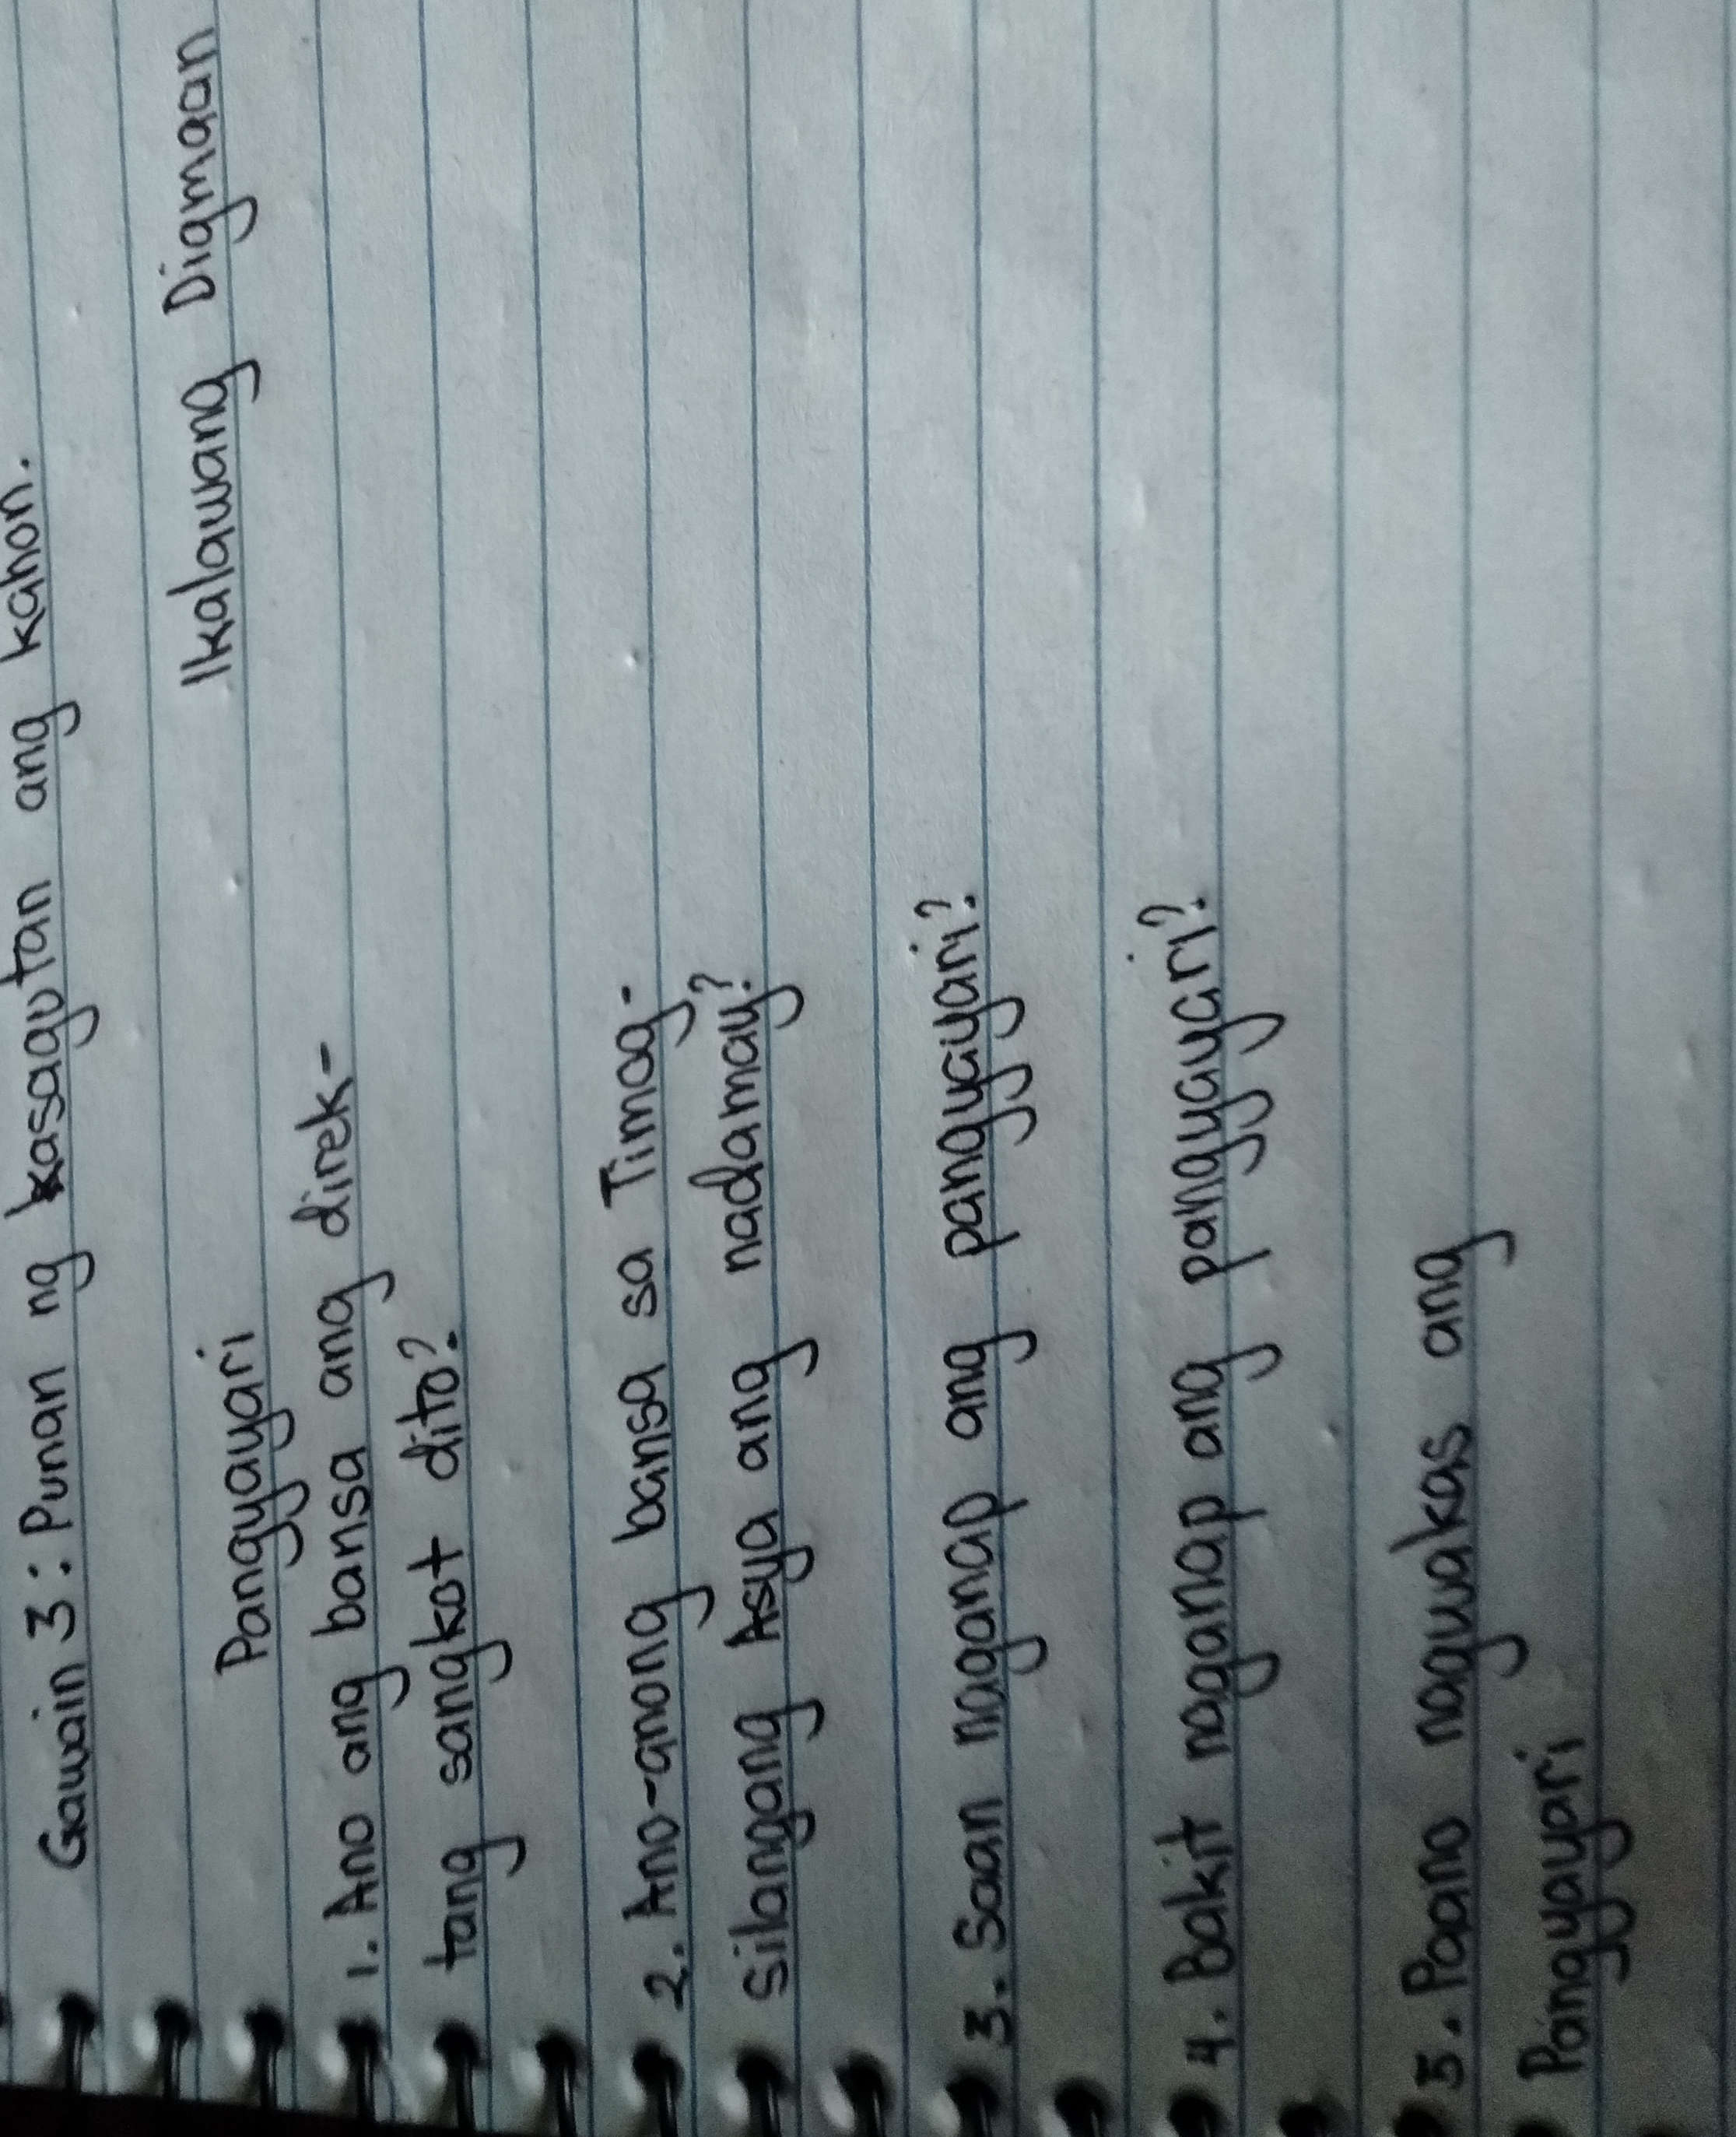 Gawain 3: Punan ng kasagutan ang kahon.
Pangyayari Ikalawang Digmaan
1. Ano ang bansa ang direk-
tang sangkot dito?
2. Ano-anong bansa sa Timog-
Silangang Asya ang nadamay?
3. Saan naganap ang pangyayari?
4. Bakit naganap ang pangyayari?
5. Paano nagwakas ang
Pangyayari